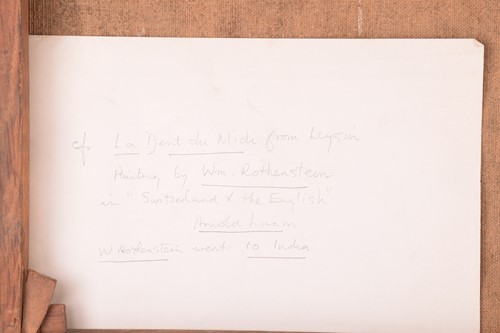 cf. La Dent du Midi from Leysin
Painting by Wm. Rothenstein
in "Switzerland & the English"
Arnold Lunn
W Rothenstein went to India